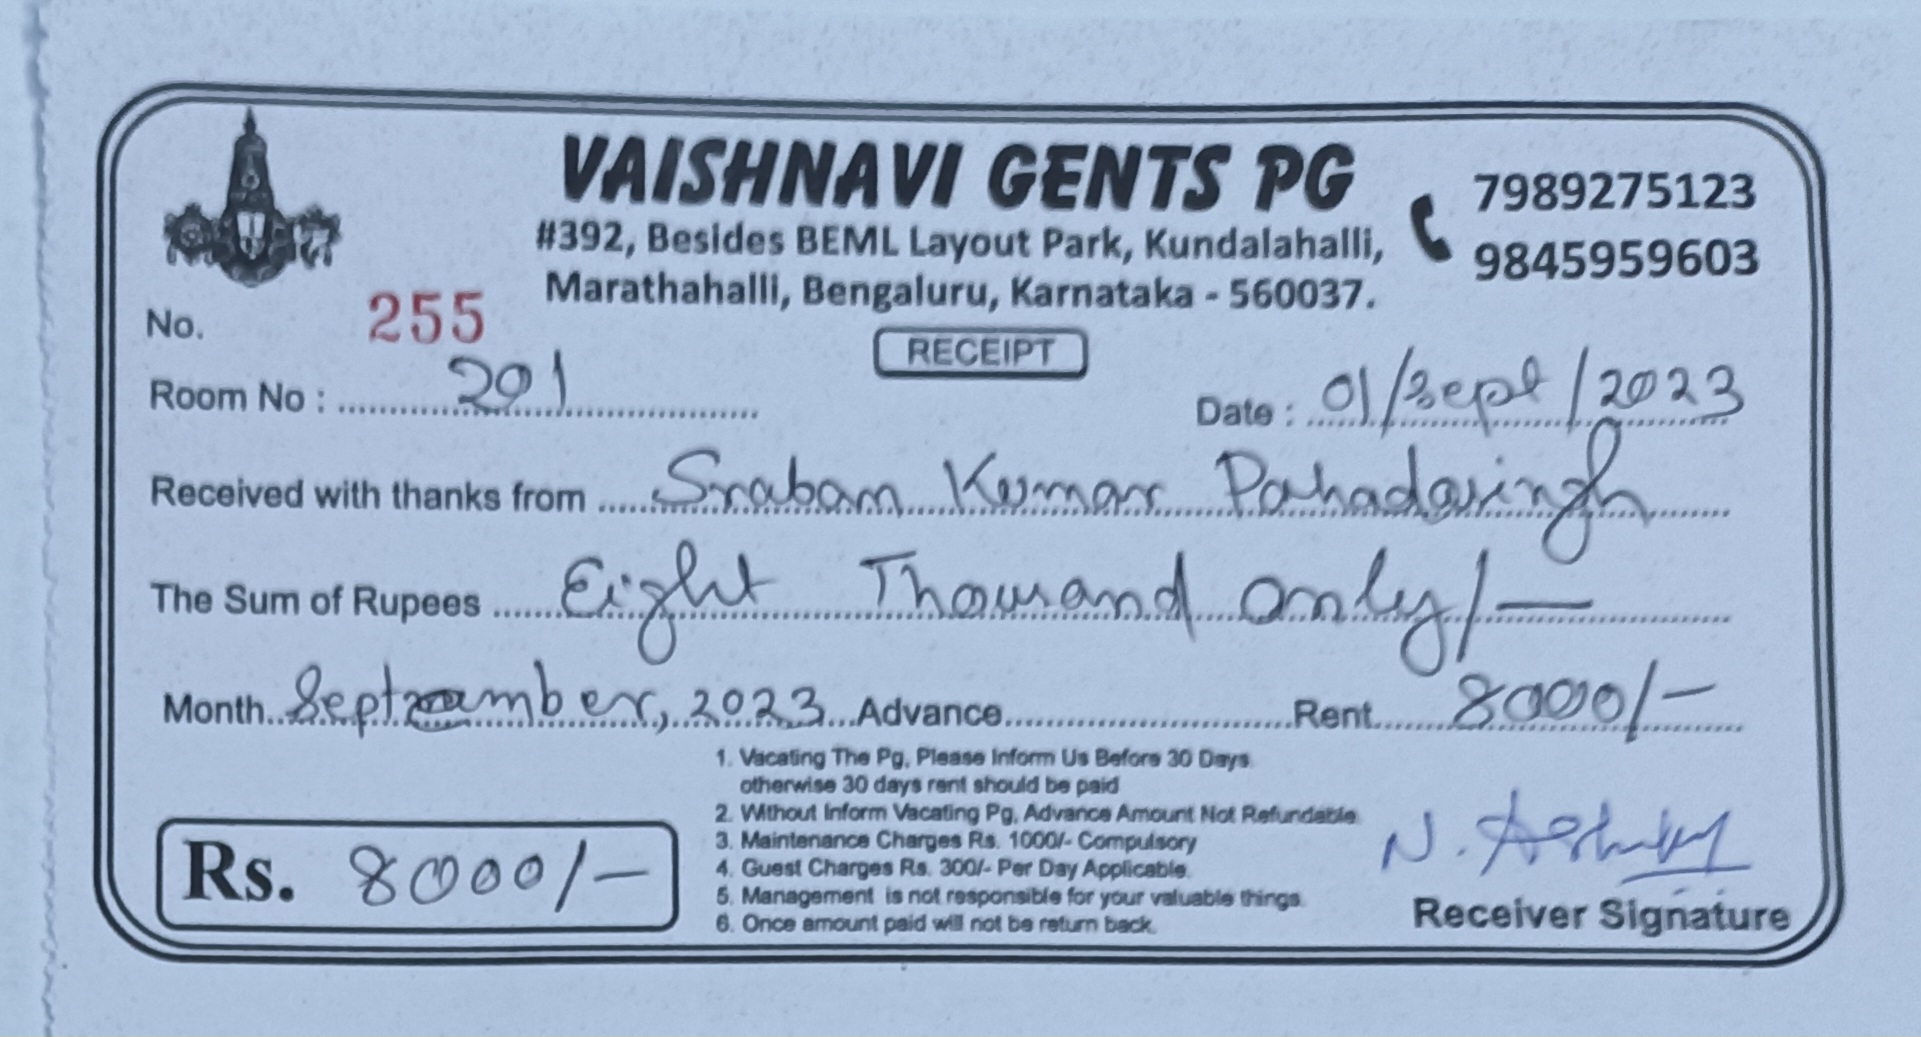 VAISHNAVI GENTS PG
#392, Besides BEML Layout Park, Kundalahalli,
Marathahalli, Bengaluru, Karnataka - 560037.
7989275123
9845959603
No. 255
RECEIPT
Room No : 201
Date : 01/Sept/2023
Received with thanks from Sraban Kumar Pahadasingh
The Sum of Rupees Eight Thousand only/-
Month September, 2023 Advance Rent 8000/-
1. Vacating The Pg, Please Inform Us Before 30 Days
otherwise 30 days rent should be paid
2. Without Inform Vacating Pg, Advance Amount Not Refundable
3. Maintenance Charges Rs. 1000/- Compulsory
4. Guest Charges Rs. 300/- Per Day Applicable.
5. Management is not responsible for your valuable things.
6. Once amount paid will not be return back.
Rs. 8000/-
N.
Receiver Signature